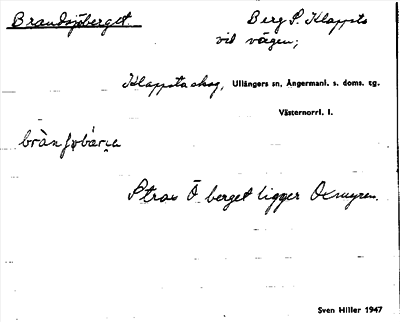 Brandsjöberget. Berg S. Klappsta
vid vägen;
Klappsta skog, Ullångers sn, Ångermanl. s. doms. tg.
Västernorrl. l.
Strax Ö berget ligger Oxmyren.
Sven Hiller 1947